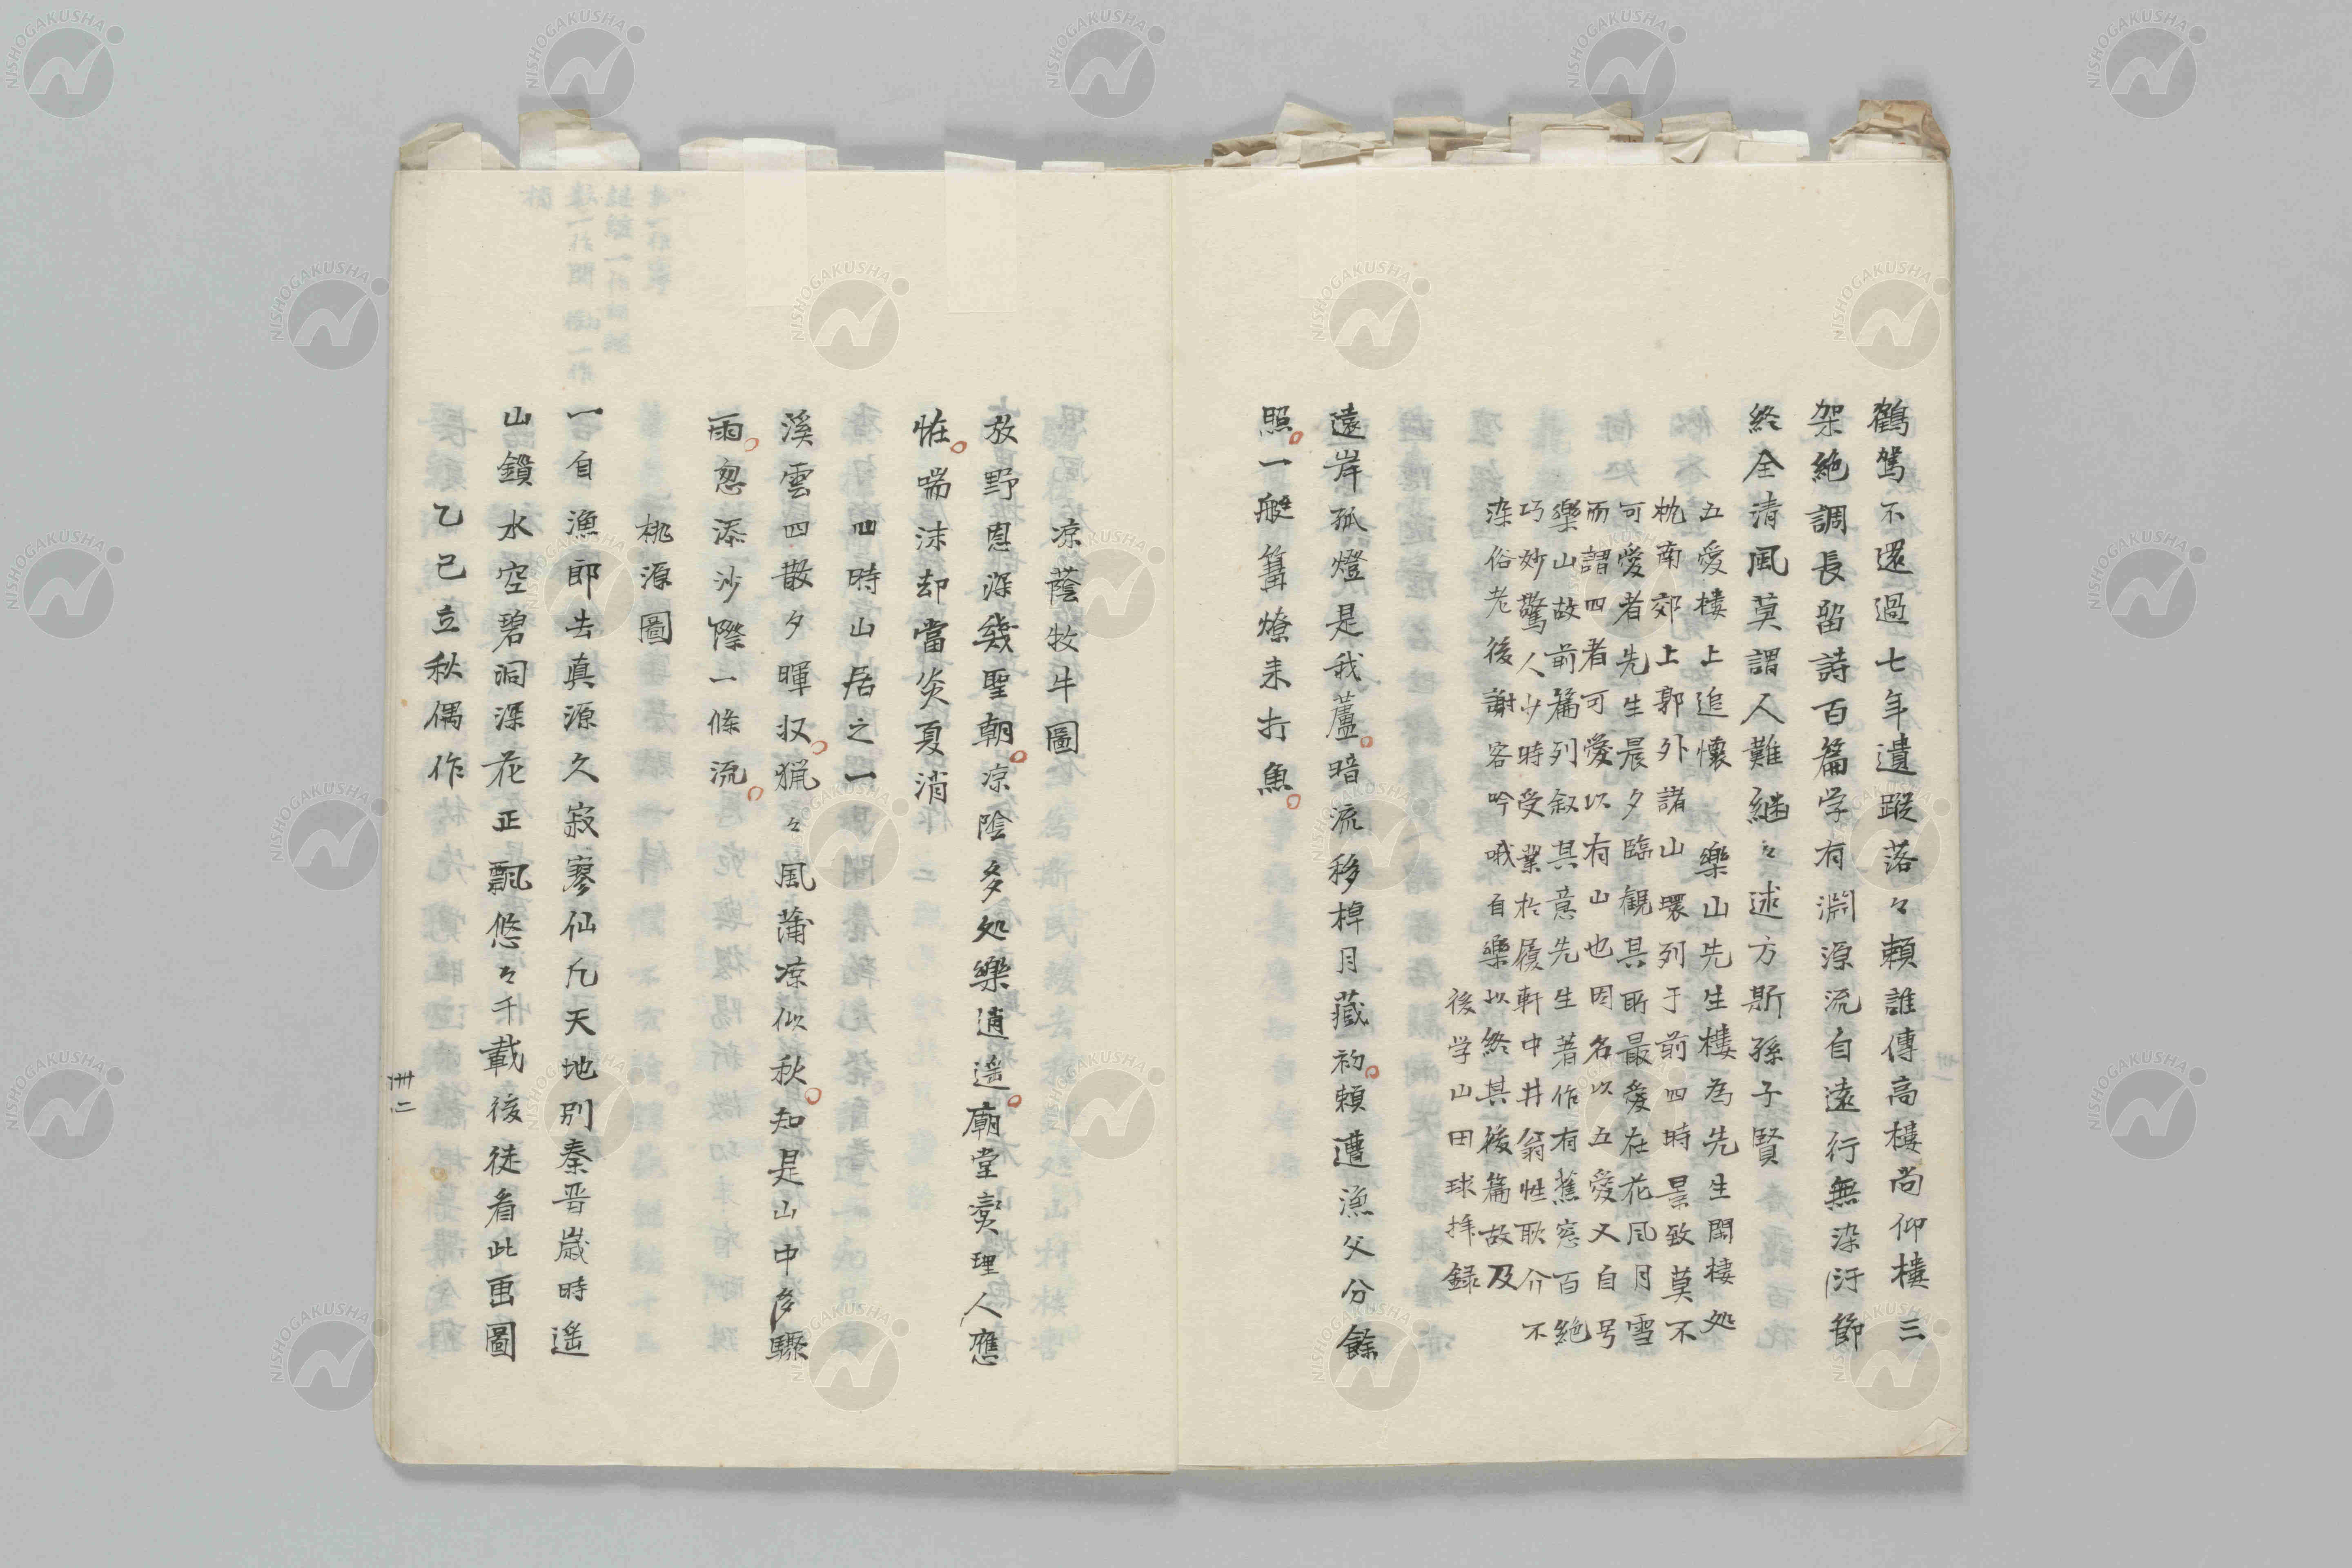 鶴駕不還過七年遺蹤落々頼誰傳高樓尚仰樓三
架絶調長留詩百篇学有淵源流自遠行無染汙節
終全清風莫謂人難繼々述方斯孫子賢
五愛樓上追懷樂山先生樓為先生閑棲処
枕南郊上郭外諸山環列于前四時景致莫不
可愛者先生晨夕臨観其所最愛在花風月雪
而謂四者可愛以有山也因名以五愛又自号
樂山故前篇列叙其意先生著作有蕉窓百絶
巧妙驚人少時受業於履軒中井翁性耿介不
染俗老後謝客吟哦自樂以終其後篇故及
後学山田球拝録
遠岸孤燈是我蘆暗流移棹月藏初頼遭漁父分餘
照一艇篝燎来打魚
凉蔭牧牛圖
放野恩深幾聖朝凉陰多処樂逍遥廟堂爕理人應
恠喘沫却當炎夏消
四時山居之一
溪雲四散夕暉収猟々風蒲凉似秋知是山中多驟
雨忽添沙際一條流
桃源圖
一自漁郎去真源久寂寥仙凡天地別秦晋歳時遥
山鎖水空碧洞深花正飄悠々千載後徒看此画圖
乙已立秋偶作
卅二
NISHOGAKUSHA